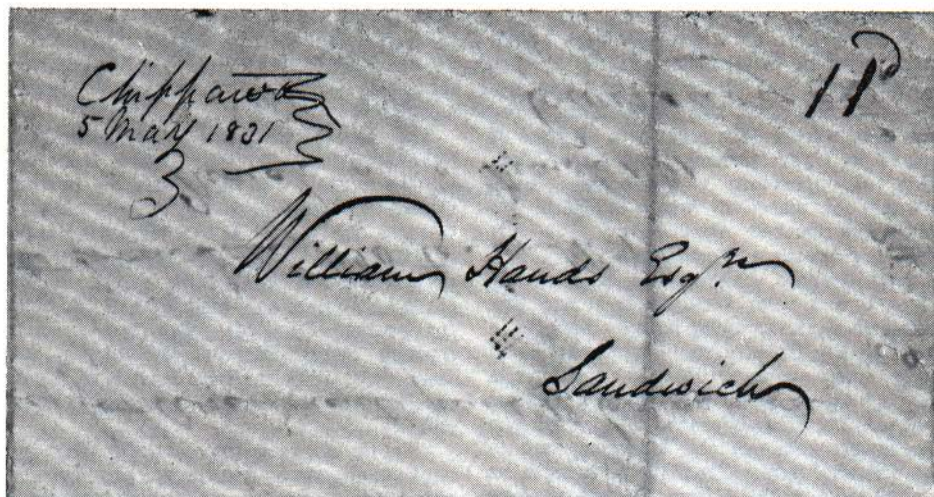 Chippawa
5 May 1831
11D
William Hands Esqr.
Sandwich